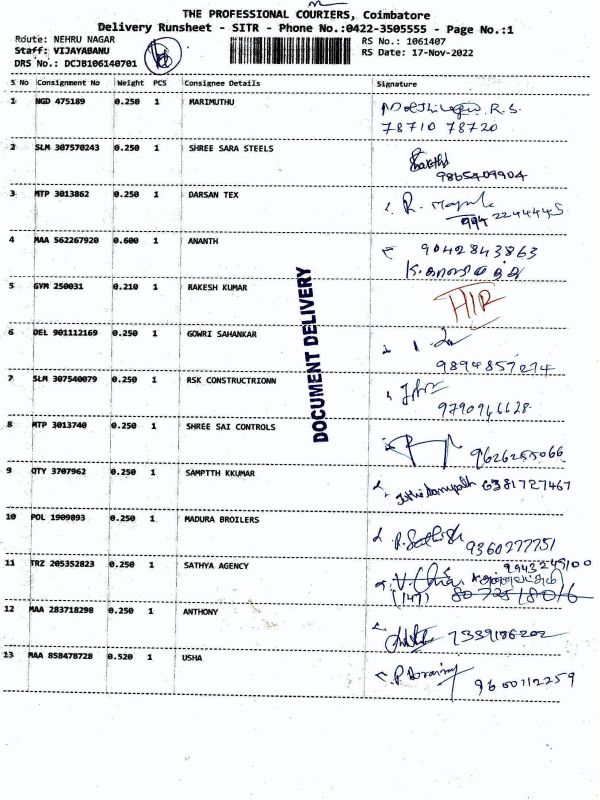 THE PROFESSIONAL COURIERS, Coimbatore
Delivery Runsheet - SITR - Phone No.:0422-3505555 - Page No.:1
Route: NEHRU NAGAR RS No.: 1061407
Staff: VIJAYABANU RS Date: 17-Nov-2022
DRS No.: DCJB106140701
S No Consignment No Weight PCS Consignee Details Signature
1 NGD 475189 0.250 1 MARIMUTHU R.S.
78710 78720
2 SLM 307570243 0.250 1 SHREE SARA STEELS Sakthi
9865409904
3 MTP 3013862 0.250 1 DARSAN TEX R.
994 2244445
4 MAA 562267920 0.600 1 ANANTH 90428 43863
5 GYM 250031 0.210 1 RAKESH KUMAR HIR
6 DEL 901112169 0.250 1 GOWRI SAHANKAR
9894857274
7 SLM 307540079 0.250 1 RSK CONSTRUCTRIONN
9790946628
8 MTP 3013740 0.250 1 SHREE SAI CONTROLS
9626255066
9 QTY 3707962 0.250 1 SAMPTTH KKUMAR 6381727467
10 POL 1909893 0.250 1 MADURA BROILERS P. Sathish 9360277751
11 TRZ 205352823 0.250 1 SATHYA AGENCY 9943249100
V.
(147)
12 MAA 283718298 0.250 1 ANTHONY 7339186202
13 MAA 858478728 0.520 1 USHA
9600112259
DOCUMENT DELIVERY